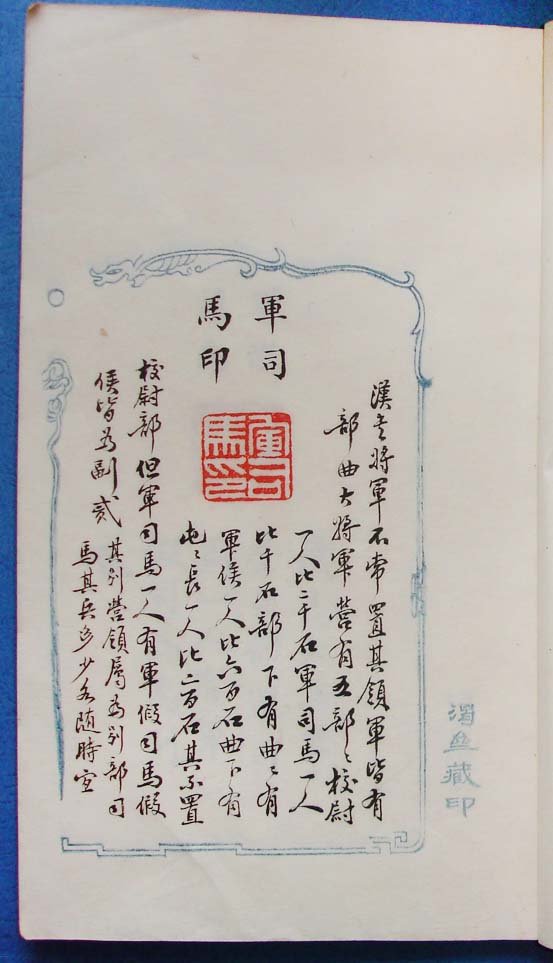 漢志將軍不常置其領軍皆有
部曲大將軍營有五部〻校尉
一人比二千石軍司馬一人
比千石部下有曲〻有
軍候一人比六百石曲下有
屯〻長一人比二百石其不置
校尉部但軍司馬一人有軍假司馬假
候皆為副貳其別營領屬為別部司
馬其兵多少各随時宜
軍司
馬印
軍司
馬印
藏印